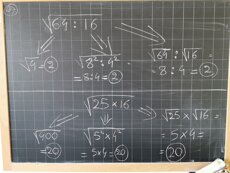 √64 : 16
√4 = 2
√8² : 4²
= 8 : 4 = 2
√64 : √16
= 8 : 4 = 2
√25 × 16
√400
= 20
√5² × 4²
= 5 × 4 = 20
√25 × √16
= 5 × 4 =
= 20